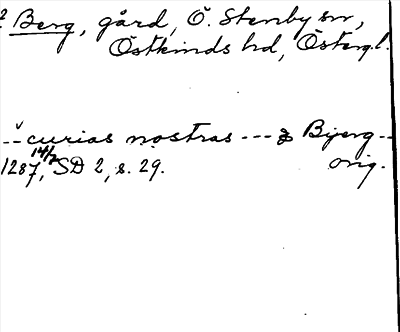 ? Berg, gård, Ö. Stenby sn,
Östkinds hd, Östergl.
--- curias nostras --- Bijerg --
1287 14/7, SD 2, s. 29. orig.